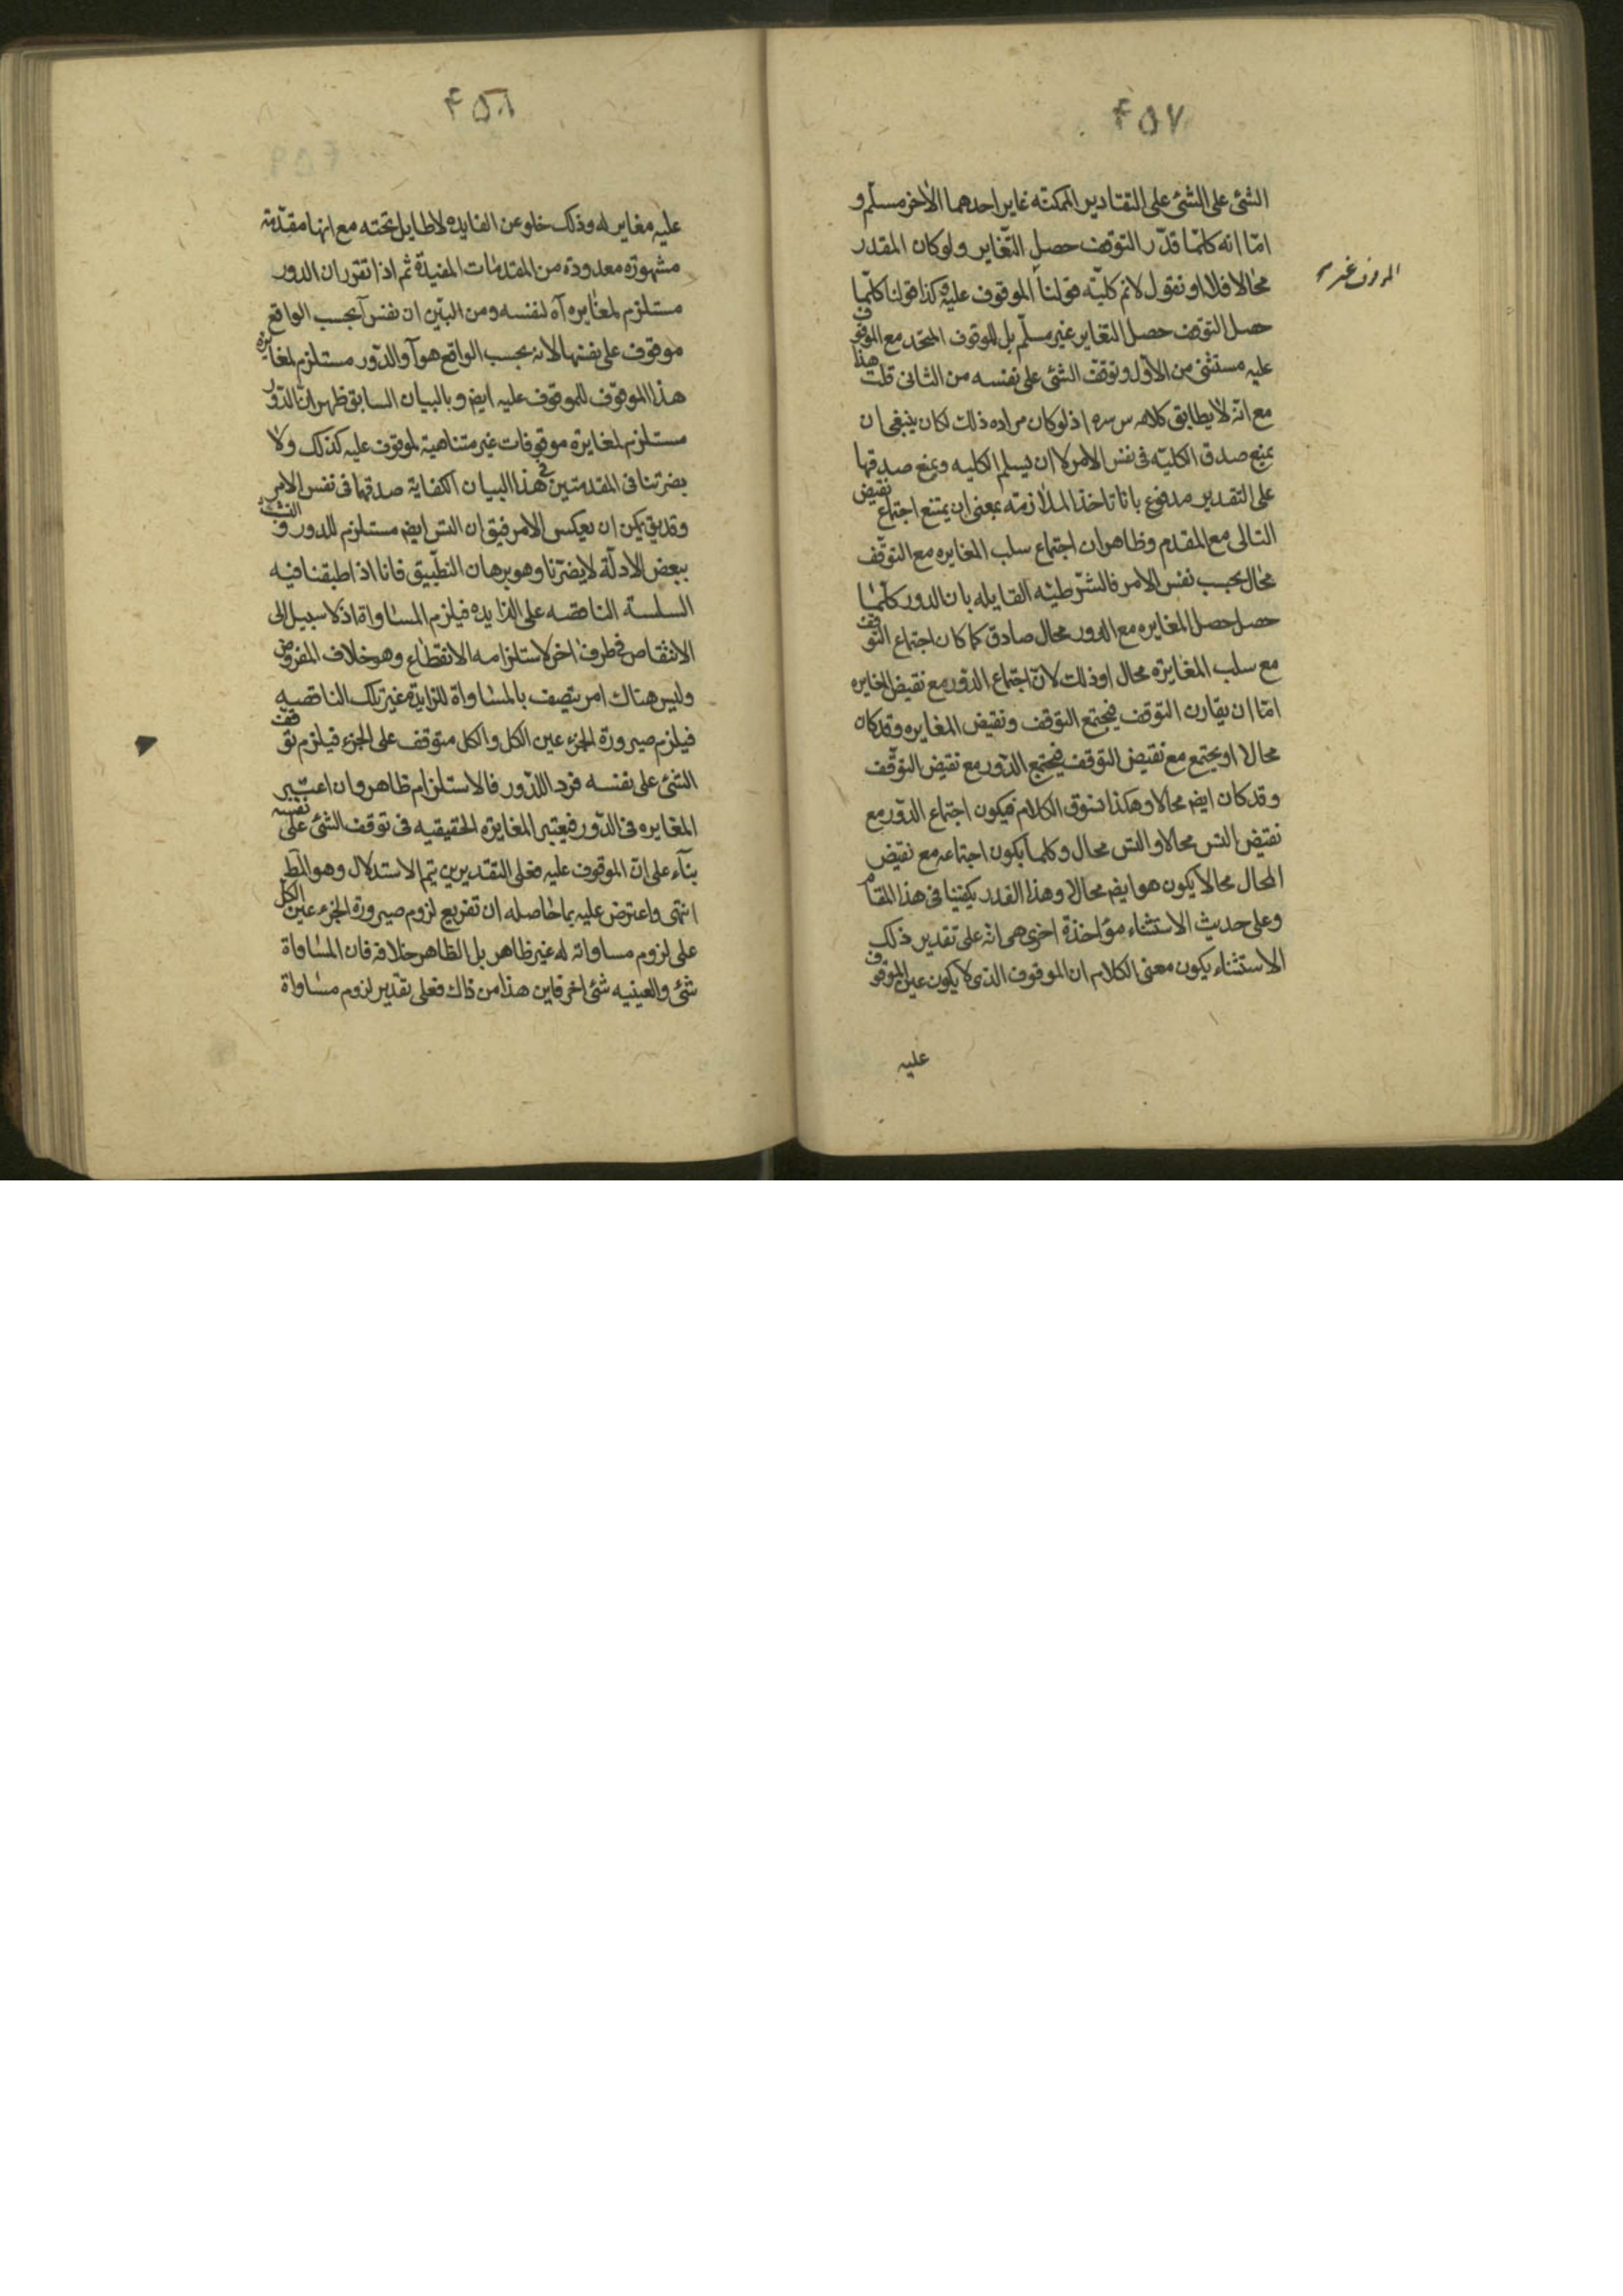 ۴۵۷
الشئ على الشئ على التقادير الممكنة غاير احدهما الآخر مسلّم و
امّا انه كلّما قدّر التوقف حصل التّغاير ولو كان المقدر
محالا فلا او نقول لانم كليّة قولنا الموقوف عليه وكذا قولنا كلّما
حصل التوقف حصل التغاير غير مسلّم بل الموقوف المتحد مع الموقوف
عليه مستثنى من الاول وتوقف الشئ على نفسه من الثانى قلت هذا
مع انّه لا يطابق كلامه س سره اذ لو كان مراده ذلك لكان ينبغى ان
يمنع صدق الكليّة فى نفس الامر لا ان يسلم الكليه ويمنع صدقها
على التقدير مدفوع بانا ناخذ الملازمة بمعنى ان يمتنع اجتماع نقيض
التالى مع المقدم وظاهر ان اجتماع سلب المغايره مع التوقّف
محال بحسب نفس الامر فالشرطيّه القايله بان الدور كلّما
حصل حصل المغايره مع الدور محال صادق كما كان اجتماع التوقف
مع سلب المغايرة محال او ذلك لانّ اجتماع الدّور مع نقيض المغايره
امّا ان يقارن التوقف فيجتمع التوقف ونقيض المغايره وقد كان
محالا او يجتمع مع نقيض التوقف فيجتمع الدّور مع نقيض التوقّف
وقد كان ايضا محالا وهكذا نسوق الكلام فيكون اجتماع الدّور مع
نقيض التس محالا والتس محال وكلما يكون اجتماعه مع نقيض
المحال محالا يكون هو ايضا محالا وهذا القدر يكفينا فى هذا المقام
وعلى حديث الاستثناء مؤاخذة اخرى هى انه على تقدير ذلك
الاستثناء يكون معنى الكلام ان الموقوف الذى لا يكون عين الموقوف
عليه
۴۵۸
عليه مغاير له وذلك خلو عن الفايده لا طايل تحته مع انها مقدّمة
مشهورة معدودة من المقدمات المفيدة ثم اذا تقرر ان الدور
مستلزم لمغايره آ لنفسه ومن البيّن ان نفس آ بحسب الواقع
موقوف على نفسها لانه بحسب الواقع هو آ والدّور مستلزم لمغايرة
هذا الموقوف للموقوف عليه ايضا وبالبيان السابق ظهر ان الدّور
مستلزم لمغايرة موقوفات غير متناهية لموقوف عليه كذلك ولا
يضرّنا فى المقدمتين فى هذا البيان لكفاية صدقها فى نفس الامر
وقد يق يمكن ان يعكس الامر فيق ان التس ايضا مستلزم للدور و
ببعض الادلّة لا يضرّنا وهو برهان التطبيق فانا اذا طبقنا فيه
السلسة الناقصه على الزايده فيلزم المساواة اذ لا سبيل الى
الانتقاص فى طرف آخر لاستلزامه الانقطاع وهو خلاف المفروض
وليس هناك امر يتصف بالمساواة للزايدة غير تلك الناقصه
فيلزم صيرورة الجزء عين الكل والكل متوقف على الجزء فيلزم توقف
الشئ على نفسه فرد اللدّور فالاستلزام ظاهر وان اعتبر
المغايره فى الدّور فيعتبر المغايرة الحقيقيه فى توقف الشئ على نفسه
بناء على انّ الموقوف عليه فعلى التقديرين يتم الاستدلال وهو المط
انتهى واعترض عليه بما حاصله ان تفريع لزوم صيرورة الجزء عين الكل
على لزوم مساواته له غير ظاهر بل الظاهر خلافه فان المساواة
شئ والعينيه شئ اخر فاين هذا من ذاك فعلى تقدير لزوم مساواة